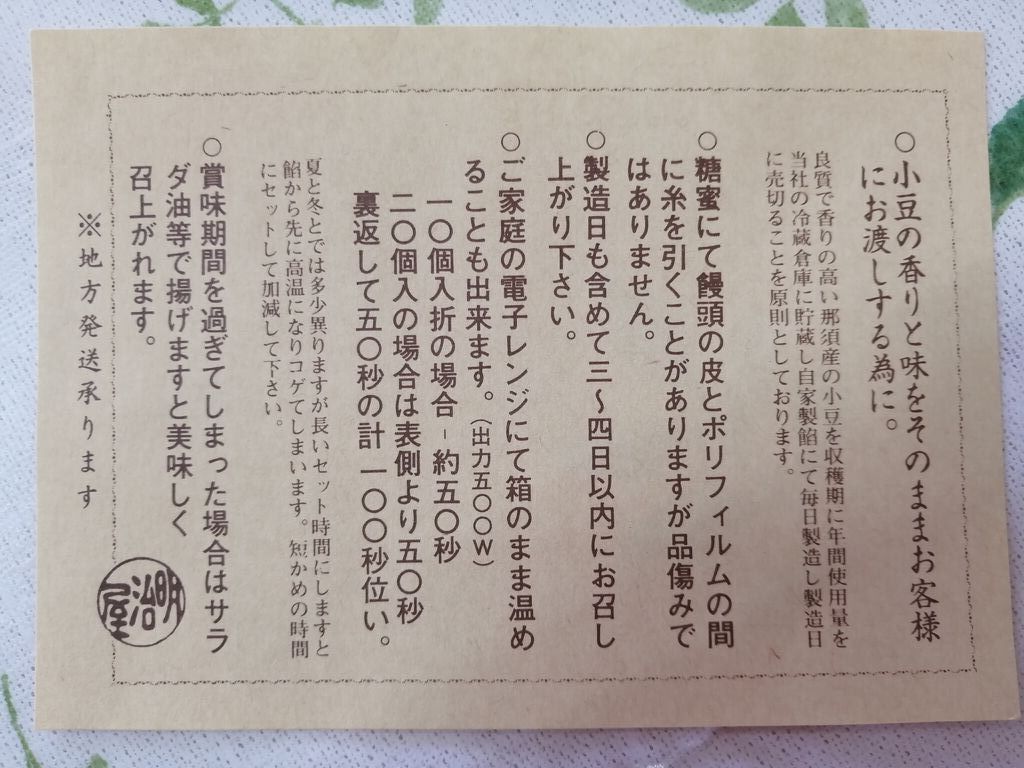 ○小豆の香りと味をそのままお客様
にお渡しする為に。
良質で香りの高い那須産の小豆を収穫期に年間使用量を
当社の冷蔵倉庫に貯蔵し自家製餡にて毎日製造し製造日
に売切ることを原則としております。
○糖蜜にて饅頭の皮とポリフィルムの間
に糸を引くことがありますが品傷みで
はありません。
○製造日も含めて三〜四日以内にお召し
上がり下さい。
○ご家庭の電子レンジにて箱のまま温め
ることも出来ます。(出力五〇〇W)
一〇個入折の場合-約五〇秒
二〇個入の場合は表側より五〇秒
裏返して五〇秒の計一〇〇秒位い。
夏と冬とでは多少異りますが長いセット時間にしますと
餡から先に高温になりコゲてしまいます。短かめの時間
にセットして加減して下さい。
○賞味期間を過ぎてしまった場合はサラ
ダ油等で揚げますと美味しく
召上がれます。
※地方発送承ります
明治屋